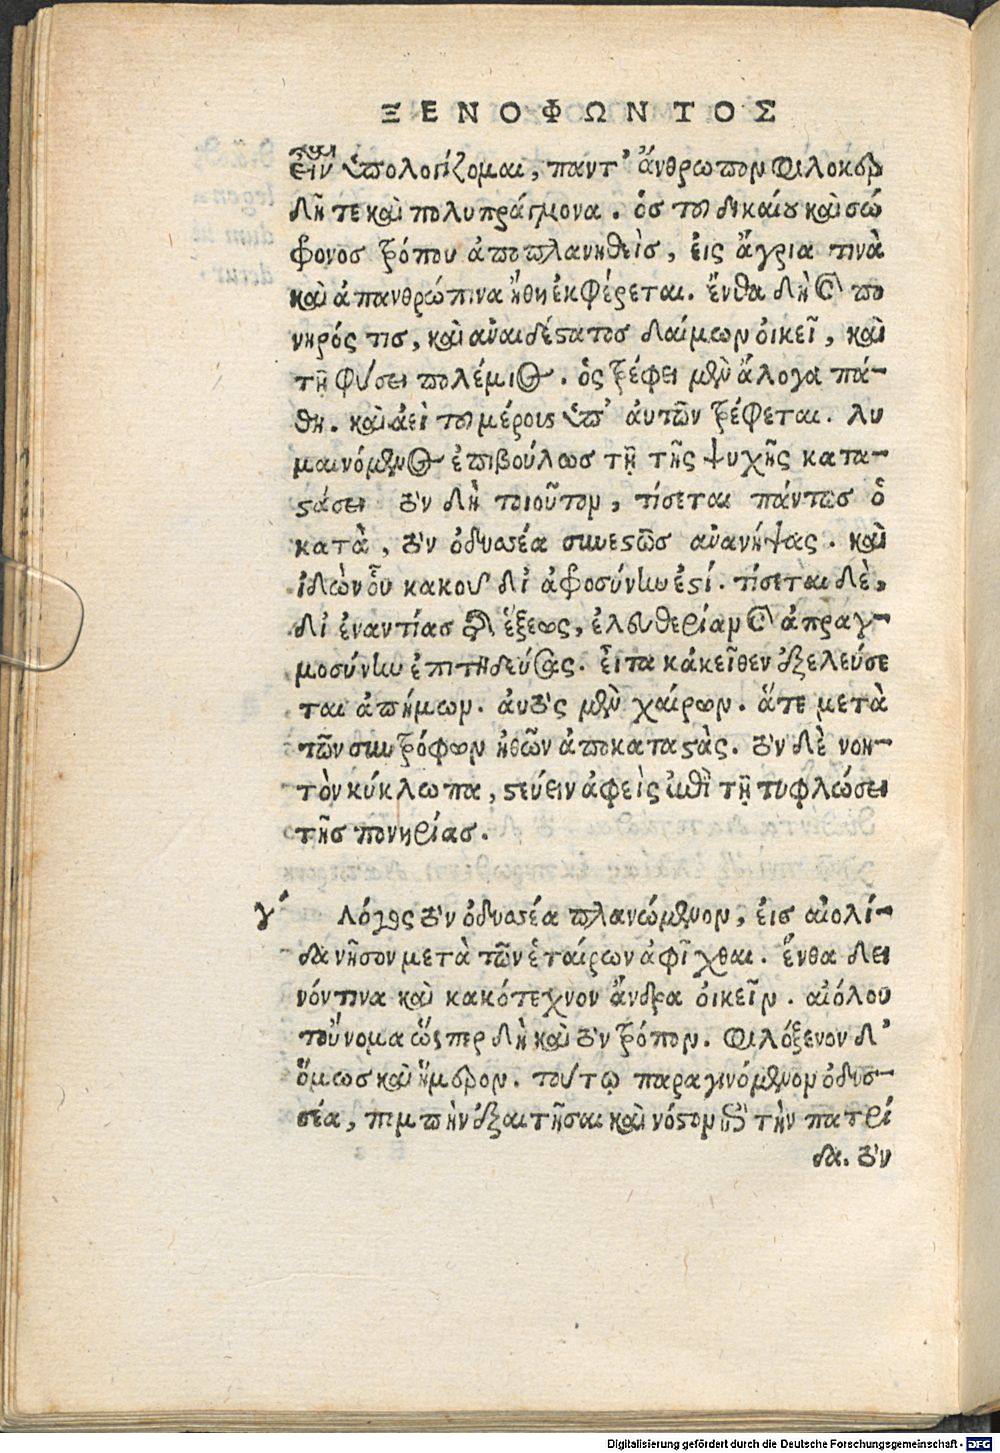 ΞΕΝΟΦΩΝΤΟΣ
ὑπολογίζομαι, παντ' ἄνθρωπον φιλοκερ
δῆ τε καὶ πολυπράγμονα. ὁς τοῦ δικαίου καὶ σώ
φρονος τρόπου ἀποπλανηθεὶς, εἰς ἄγρια τινὰ
καὶ ἀπανθρώπινα ἤθη ἐκφέρεται. ἔνθα δὴ καὶ πο
νηρός τις, καὶ αὐαιδέστατος δαίμων οἰκεῖ, καὶ
τῇ φύσει πολέμιος. ὁς τρέφει μὲν ἄλογα πά-
θη. καὶ ἀεὶ τοῦ μέρους ὑπ' αὐτῶν τρέφεται. λυ
μαινόμενος ἐπιβούλως τῇ τῆς ψυχῆς κατα-
στάσει τὸν δὴ τοιοῦτον, τίσεται πάντως ὁ
κατὰ, τὸν ὀδυσσέα συνεστῶς αὐανήψας. καὶ
ἰδὼν οὗ κακοῦ δι' ἀφροσύνην ἐστί. τίσεται δὲ,
δι' ἐναντίας τῆς ἕξεως, ἐλευθερίαν καὶ ἀπραγ-
μοσύνην ἐπιτηδεύσας. εἶτα κἀκεῖθεν ἐξελεύσε
ται ἀπήμων. αὐτὸς μὲν χαίρων. ἅτε μετὰ
τῶν συντρόφων ἠθῶν ἀποκαταστάς. τὸν δὲ νοη-
τὸν κύκλωπα, στεύειν ἀφεὶς ἐπὶ τῇ τυφλώσει
τῆς πονηρίας.
γ' Λόγος τὸν ὀδυσσέα πλανώμενον, εἰς αἰολί-
δα νῆσον μετὰ τῶν ἑταίρων ἀφῖχθαι. ἔνθα δει
νόν τινα καὶ κακότεχνον ἄνδρα οἰκεῖν. αἰόλου
τοὔνομα ὥσπερ δὴ καὶ τὸν τρόπον. φιλόξενον δ'
ὅμως καὶ ἥμερον. τούτῳ παραγινόμενον ὀδυσ-
σέα, πιμπὴν ἐξαιτῆσαι καὶ νόστον εἰς τὴν πατρί
δα. τὸν
Digitalisierung gefördert durch die Deutsche Forschungsgemeinschaft - DFG